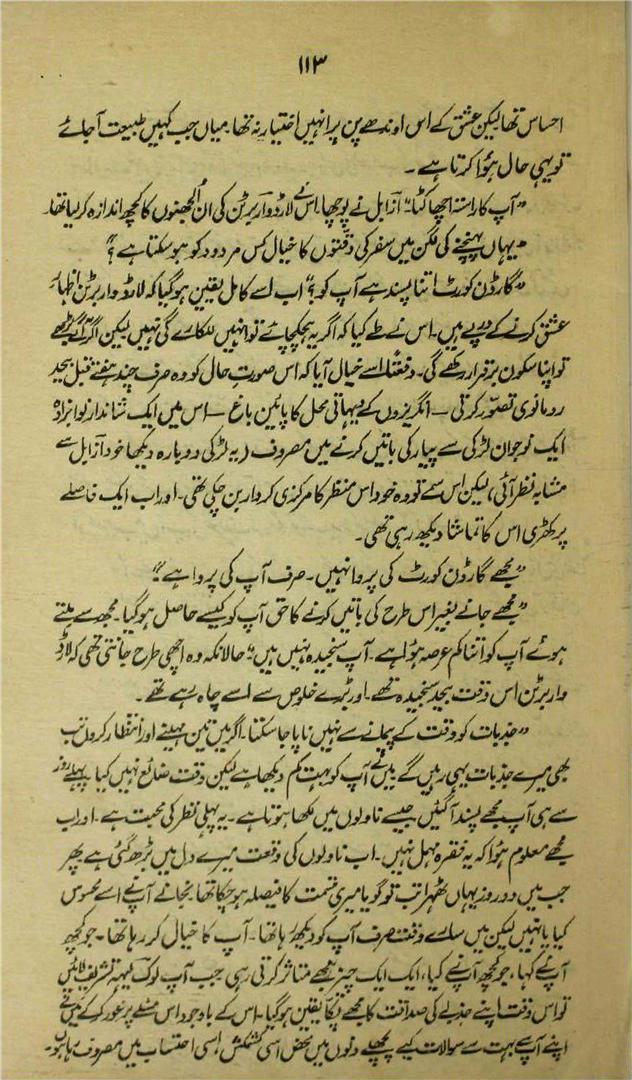 ۱۱۳
احساس تھا لیکن عشق کے اس اوندھے پن پر انہیں اختیار نہ تھا۔ میاں جب کہیں طبیعت آجائے
تو یہی حال ہؤا کرتا ہے ۔
”آپ کا راستہ اچھا کٹا۔“ آزابل نے پوچھا۔ اس نے لارڈ واربرٹن کی ان الجھنوں کا کچھ اندازہ کر لیا تھا۔
”یہاں پہنچنے کی لگن میں سفر کی دقتوں کا خیال کس مردود کو ہو سکتا ہے؟“
”گارڈن کورٹ اتنا پسند ہے آپ کو؟“ اب اسے کامل یقین ہو گیا کہ لارڈ واربرٹن اظہار
عشق کرنے کے درپے ہیں۔ اس نے طے کیا کہ اگر یہ ہچکچائے تو انہیں للکارے گی نہیں لیکن اگر آگے بڑھے
تو اپنا سکون برقرار رکھے گی۔ دفعتاً اسے خیال آیا کہ اس صورتِ حال کو وہ صرف چند ہفتے قبل بیحد
رومانوی تصور کرتی — انگریزوں کے دیہاتی محل کا پائین باغ — اس میں ایک شاندار نوابزادہ
ایک نوجوان لڑکی سے پیار کی باتیں کرنے میں مصروف (یہ لڑکی دوبارہ دیکھا خود آزابل سے
مشابہ نظر آئی، لیکن اس سمے تو وہ خود اس منظر کا مرکزی کردار بن چکی تھی۔ اور اب ایک فاصلے
پر کھڑی اس کا تماشا دیکھ رہی تھی۔
”مجھے گارڈن کورٹ کی پروا نہیں۔ صرف آپ کی پروا ہے۔“
”مجھے جانے بغیر اس طرح کی باتیں کرنے کا حق آپ کو کیسے حاصل ہو گیا۔ مجھ سے ملتے
ہوئے آپ کو اتنا کم عرصہ ہؤا ہے۔ آپ سنجیدہ نہیں ہیں“ حالانکہ وہ اچھی طرح جانتی تھی کہ لارڈ
واربرٹن اس وقت بیحد سنجیدہ تھے۔ اور بڑے خلوص سے اسے چاہ رہے تھے۔
”جذبات کو وقت کے پیمانے سے نہیں ناپا جا سکتا۔ اگر میں تین مہینے اور انتظار کروں تب
بھی میرے جذبات یہی رہیں گے میں نے آپ کو بہت کم دیکھا ہے لیکن وقت ضائع نہیں کیا پہلے روز
سے ہی آپ مجھے پسند آگئیں جیسے ناولوں میں لکھا ہوتا ہے۔ یہ پہلی نظر کی محبت ہے۔ اور اب
مجھے معلوم ہؤا کہ یہ فقرہ مہمل نہیں۔ اب ناولوں کی وقعت میرے دل میں بڑھ گئی ہے پھر
جب میں دو روز یہاں ٹھہرا تب تو گویا میری قسمت کا فیصلہ ہو چکا تھا نجانے آپ نے اسے محسوس
کیا یا نہیں لیکن میں سارے وقت صرف آپ کو دیکھ رہا تھا۔ آپ کا خیال کر رہا تھا۔ جو کچھ
آپ نے کہا، جو کچھ آپ نے کیا، ایک ایک چیز مجھے متاثر کرتی رہی جب آپ لوک لیہہ تشریف لائیں
تو اس وقت اپنے جذبے کی صداقت کا مجھے پکا یقین ہو گیا۔ اس کے باوجود اس مسئلے پر غور کر کے میں نے
اپنے آپ سے بہت سے سوالات کیے پچھلے دنوں میں محض اسی کشمکش، اسی احتساب میں مصروف رہا ہوں۔